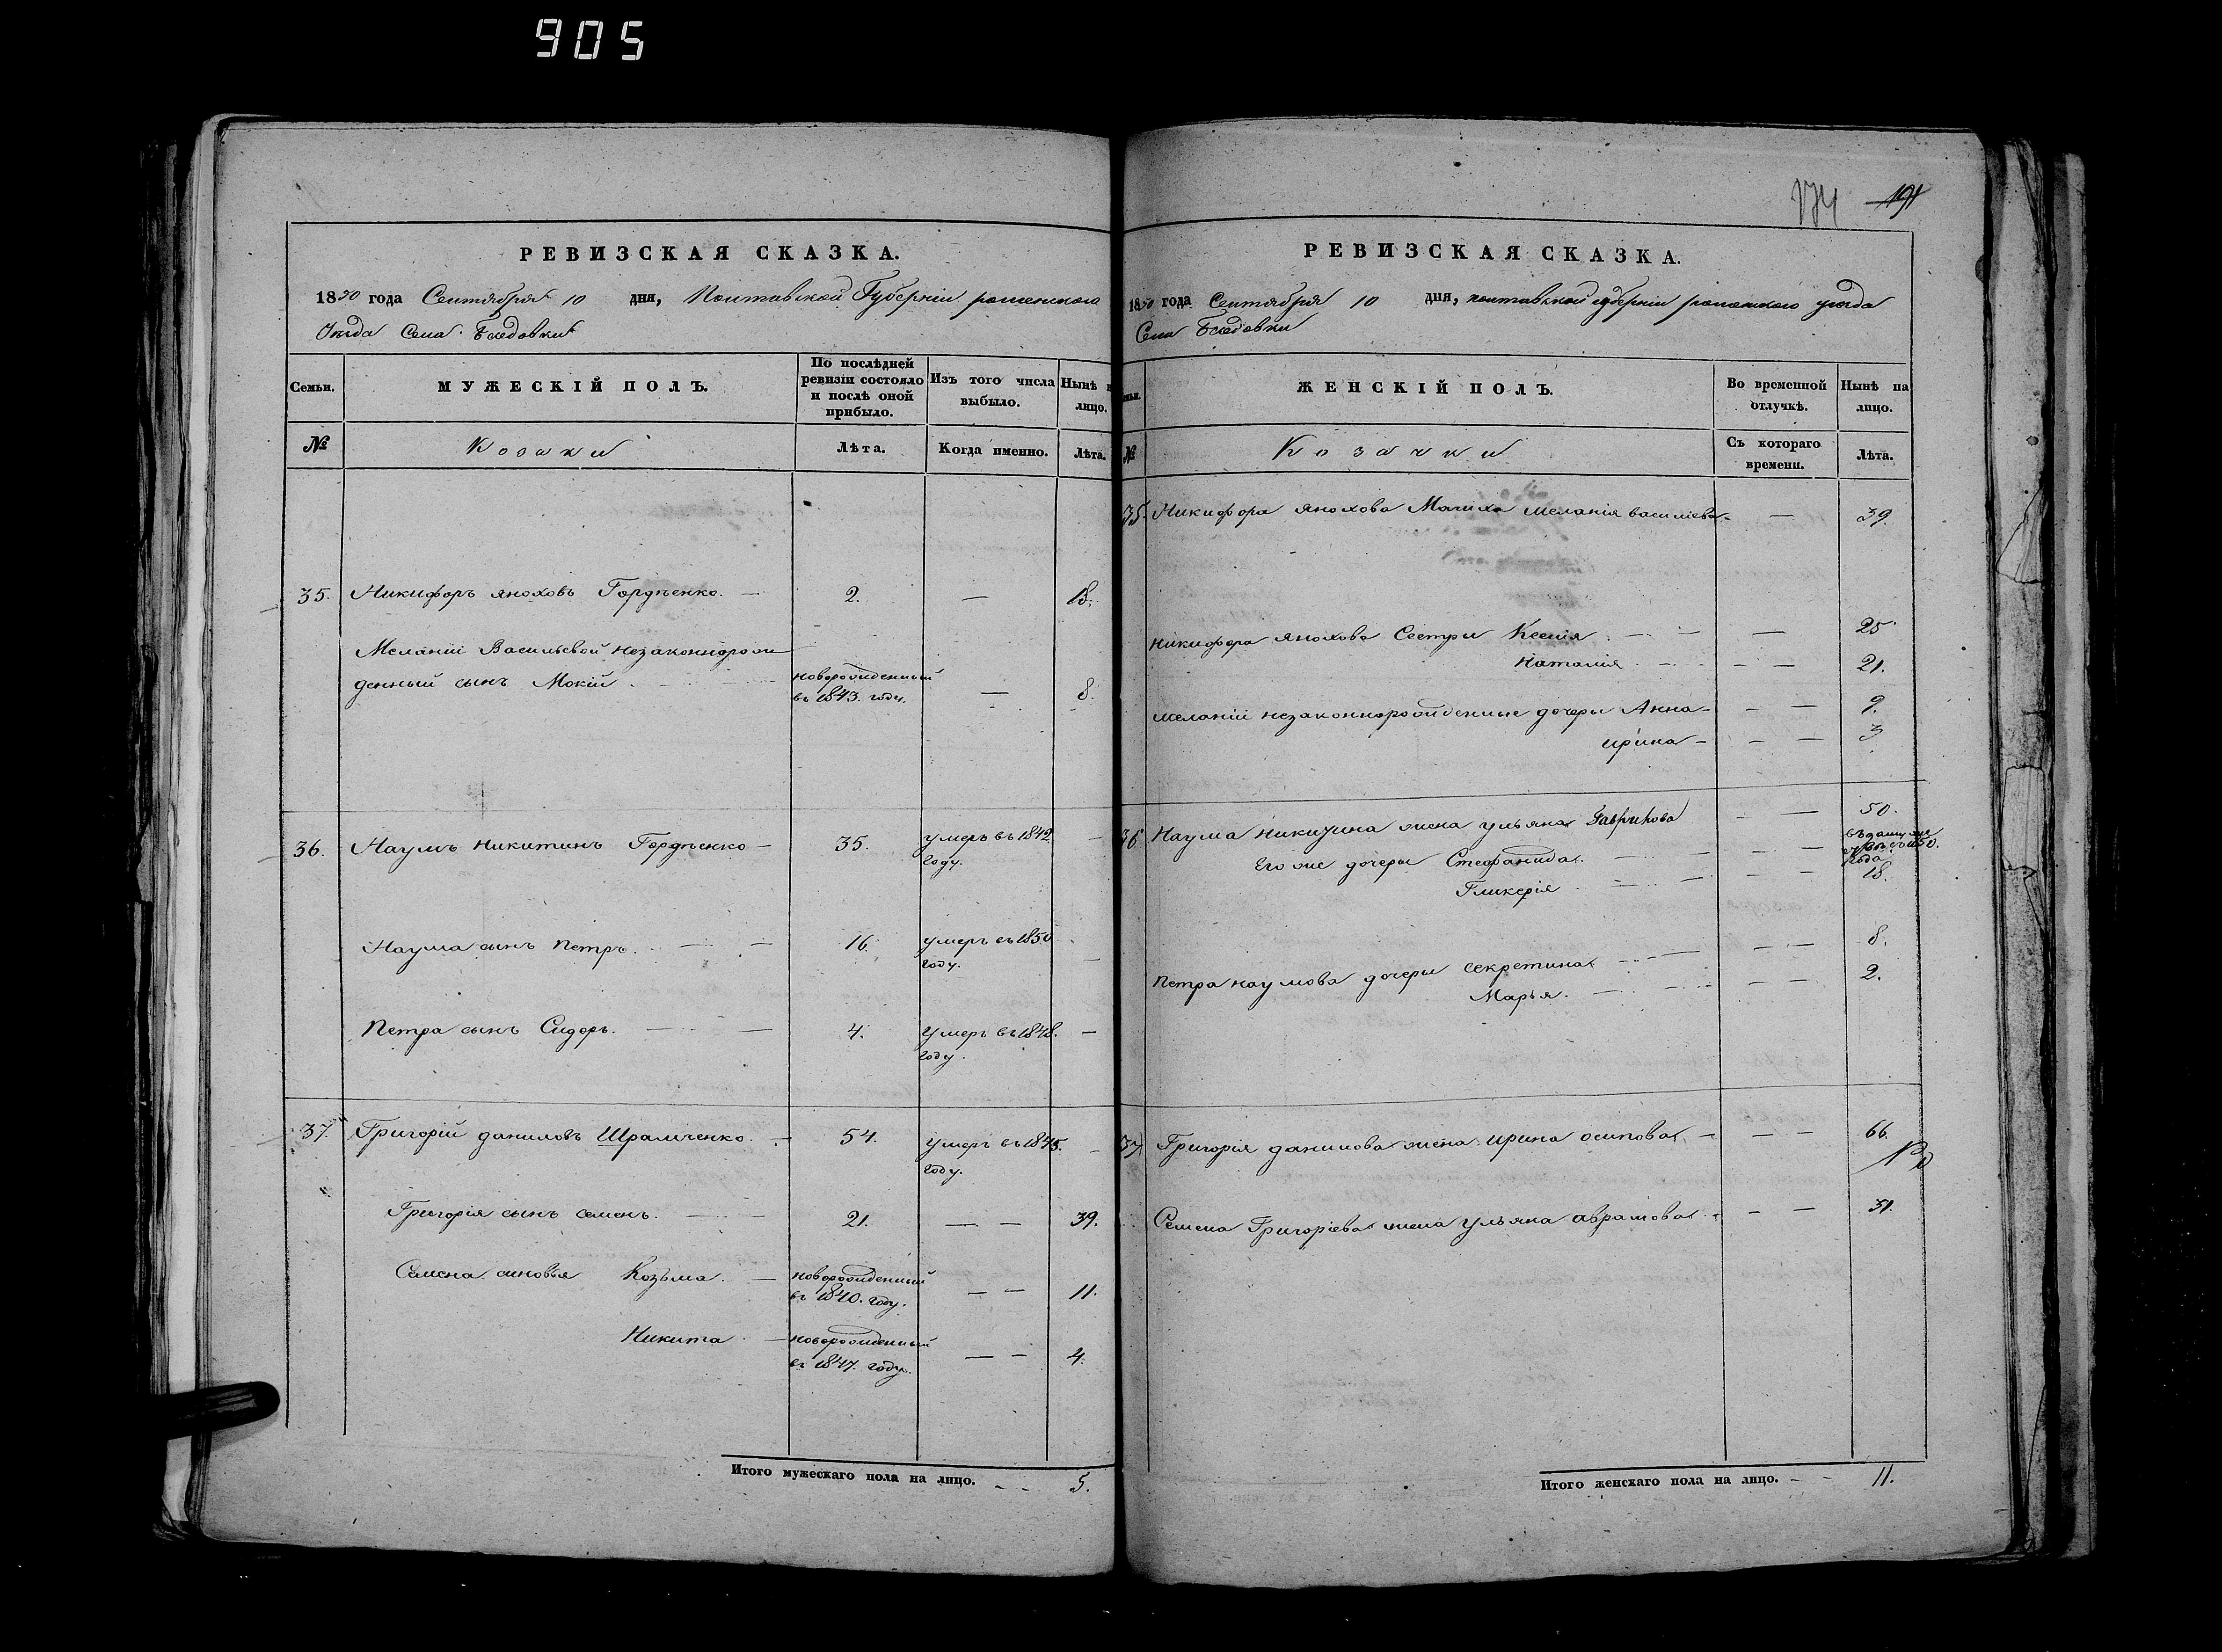 905
РЕВИЗСКАЯ СКАЗКА.
1850 года Сентября 10 дня, Полтавской Губерніи роменскаго
Уезда Села Бсѣдовки
Семьи. МУЖЕСКІЙ ПОЛЪ. По послѣдней ревизіи состояло и послѣ оной прибыло. Изъ того числа выбыло. Нынѣ на лицо.
№ Козаки Лѣта. Когда именно. Лѣта.
35. Никифоръ яноховъ Гордѣенко. — 2. — 18.
Меланіи Васильевой незаконнорож
денный сынъ Мокій. новорожденный въ 1843. году. — 8.
36. Наумъ никитинъ Гордѣенко — 35. умеръ въ 1842 году. —
Наума сынъ петръ. — 16. умеръ въ 1850 году. —
Петра сынъ Сидоръ. — 4. умеръ въ 1848. году. —
37. Григорій даниловъ Шрамченко. — 54. умеръ въ 1845. году. —
Григорія сынъ семенъ. — 21. — — 39.
Семена сыновья Козьма. — новорожденный въ 1840. году. — — 11.
Никита — новорожденный въ 1847. году. — — 4.
Итого мужескаго пола на лицо. — — 5.
174 191
РЕВИЗСКАЯ СКАЗКА.
1850 года Сентября 10 дня, полтавской губерніи роменскаго уезда
Села Бсѣдовки
ЖЕНСКІЙ ПОЛЪ. Во временной отлучкѣ. Нынѣ на лицо.
№ Козачки Съ котораго времени. Лѣта.
35. Никифора янохова Мачиха меланія васильева — — 39.
Никифора янохова Сестры Ксенія — — 25
наталія — — 21.
меланіи незаконнорожденные дочери Анна — — 9.
ирина — — 3
36 Наума никитина жена ульяна Гаврилова — — 50.
Его же дочери Стефанида. — —
Гликерія — — 18.
Петра наумова дочери секретина — — 8.
Марья. — — 2.
37 Григорія данилова жена ирина осипова — — — 66.
Семена Григоріева жена ульяна аврамова — — 31.
Итого женскаго пола на лицо. — — 11.